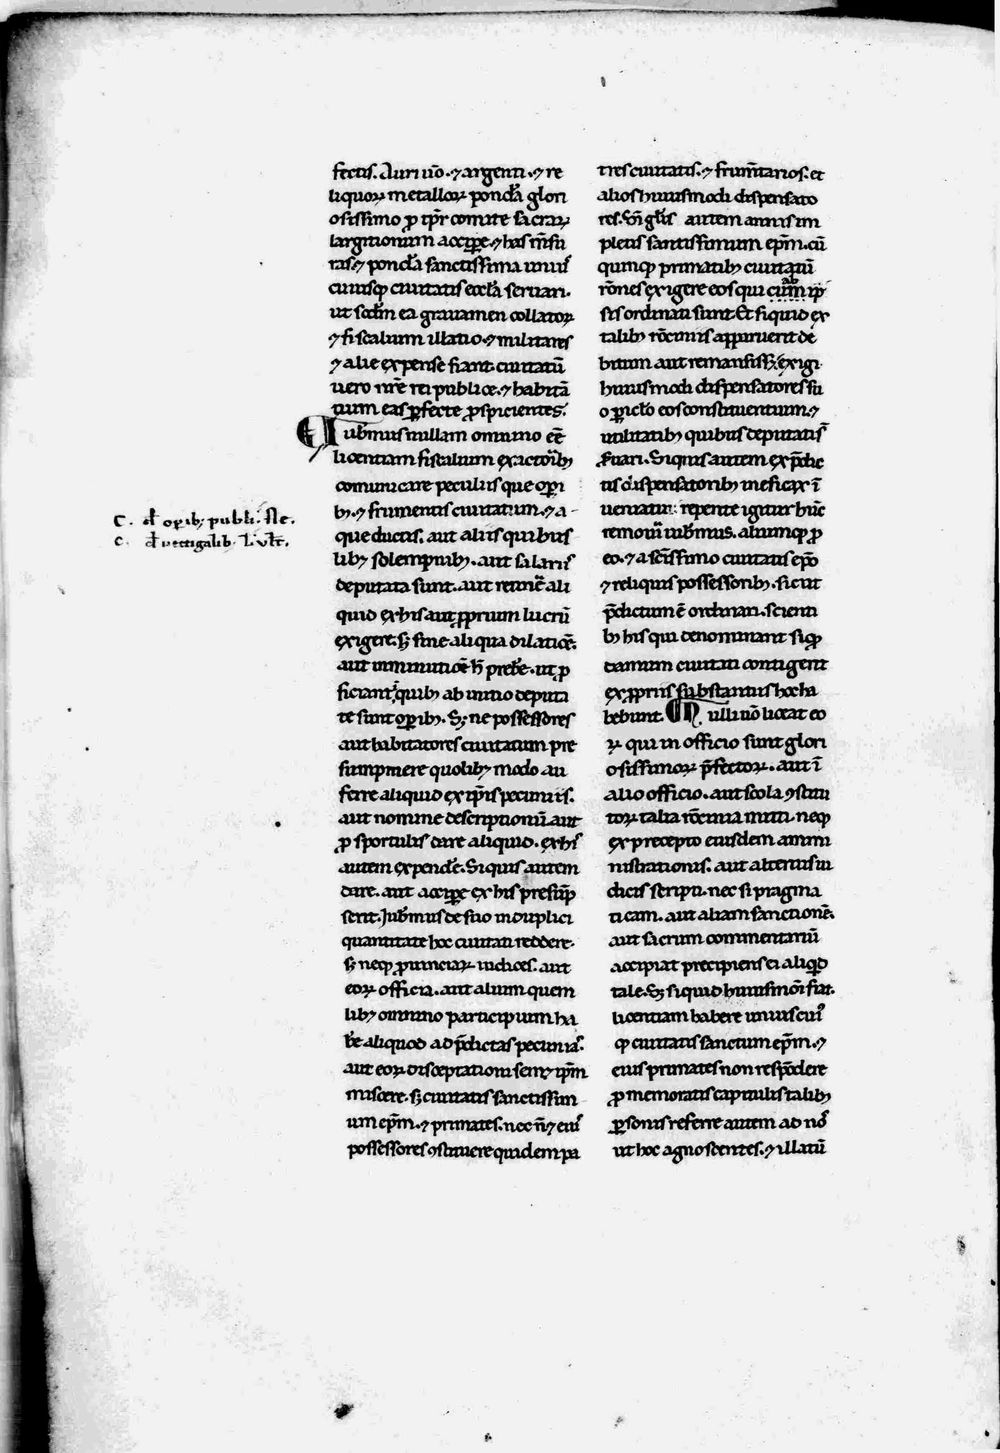 fectis. Auri u̅o. ⁊ argenti. ⁊ re
liquoꝝ metalloꝝ pond̅a glori
osissimo ꝓ tp̅r comite sacraꝝ
largitionum accipe̅. ⁊ has m̅su
ras. ⁊ pond̅a sanctissima unius
cuiusqꝫ ciuitatis eccl̅a seruari.
ut sc̅dm ea grauamen collatoꝝ
⁊ fiscalium illatio. ⁊ militares
⁊ alie expense fiant. ciuitatu̅
uero nr̅e rei publice. ⁊ habita̅
tium eas ꝑfecte ꝓspicientes.
Iubem̅us nullam omnino ee̅
licentiam fiscalium exactorib̅ꝫ
comunicare peculiis que oꝑi
bꝫ. ⁊ frumentis ciuitatum. ⁊ a-
que ductis. aut aliis quibus
libꝫ solempnibꝫ. aut salariis
deputata sunt. aut retine̅ ali
quid ex his aut ꝓprium lucru̅
exigere. sꝫ sine aliqua dilatio̅e.
aut inminutio̅e h̅ prebe̅. ut ꝓ
ficiant quibꝫ ab initio deputa
te sunt oꝑibꝫ. Sꝫ ne possessores
aut habitatores ciuitatum pre
sumpmere quolibꝫ modo au
ferre aliquid ex ip̅is pecuniis.
aut nomine descriptionu̅. aut
ꝓ sportulis dare aliquid. ex his
autem expende̅. Siquis autem
dare. aut accipe̅ ex his presu̅p
serit. Iubem̅us de suo in duplici
quantitate hoc ciuitati reddere.
sꝫ neqꝫ ꝓuinciaꝝ iudices. aut
eoꝝ officia. aut alium quem
libꝫ omnino participium ha
be̅ aliquod ad p̅dictas pecunias.
aut eoꝝ disceptationi semꝫ ip̅m
miscere. sꝫ ciuitatis sanctissim
um ep̅m. ⁊ primates. nec n̅ ⁊ eius
possessores ꝯstituere quidem pa
C. d̅ oꝑibꝫ publi.
C. d̅ uectigalib.
tres ciuitatis. ⁊ frum̅tarios. et
alios huiusmodi dispensato
res. Sin̅gl̅is autem annis im
pletis santissimum ep̅m. cu̅
quinqꝫ primatibꝫ ciuitatu̅
ro̅nes exigere eos qui cum ip
sis ordinati sunt. Et siquid ex
talibꝫ ro̅ciniis apparuerit de
bitum aut remansiss̅ꝫ. exigi
huiusmodi dispensatores su
o ꝑicl̅o eos constituentium. ⁊
utilitatibꝫ quibus deputatis
s̅uari. Siquis autem ex p̅dic
tis dispensatoribꝫ inefficax i̅
ueniatur. repente igitur hu̅c
remoui̅ iubem̅us. aliumqꝫ ꝓ
eo. ⁊ a sc̅issimo ciuitatis ep̅o
⁊ reliquis possessoribꝫ. sicut
p̅dictum e̅ ordinari. scienti
bꝫ his qui denominant siqꝫ
damnum ciuitati contigerit
ex ꝓpriis substantiis hoc ha
bebunt. Nulli uo̅ liceat eo
ꝝ qui in officio sunt glori
osissimoꝝ p̅fectoꝝ. aut i̅
alio officio. aut scola ꝯstitu
toꝝ talia ro̅cinia mitti. neqꝫ
ex precepto eiusdem ammi
nistrationis. aut alterius iu
dicis scripti. nec si pragma
ticam. aut aliam sanctione̅.
aut sacrum commentariu̅
accipiat precipiens ei aliqud
tale. Sꝫ siquid huiusmo̅i fiat.
licentiam habere unius cuius
qꝫ ciuitatis sanctum ep̅m. ⁊
eius primates non respo̅dere
ꝓ memoratis capitulis talibꝫ
ꝑsonis referre autem ad nos
ut hoc agnoscentes. ⁊ illatu̅